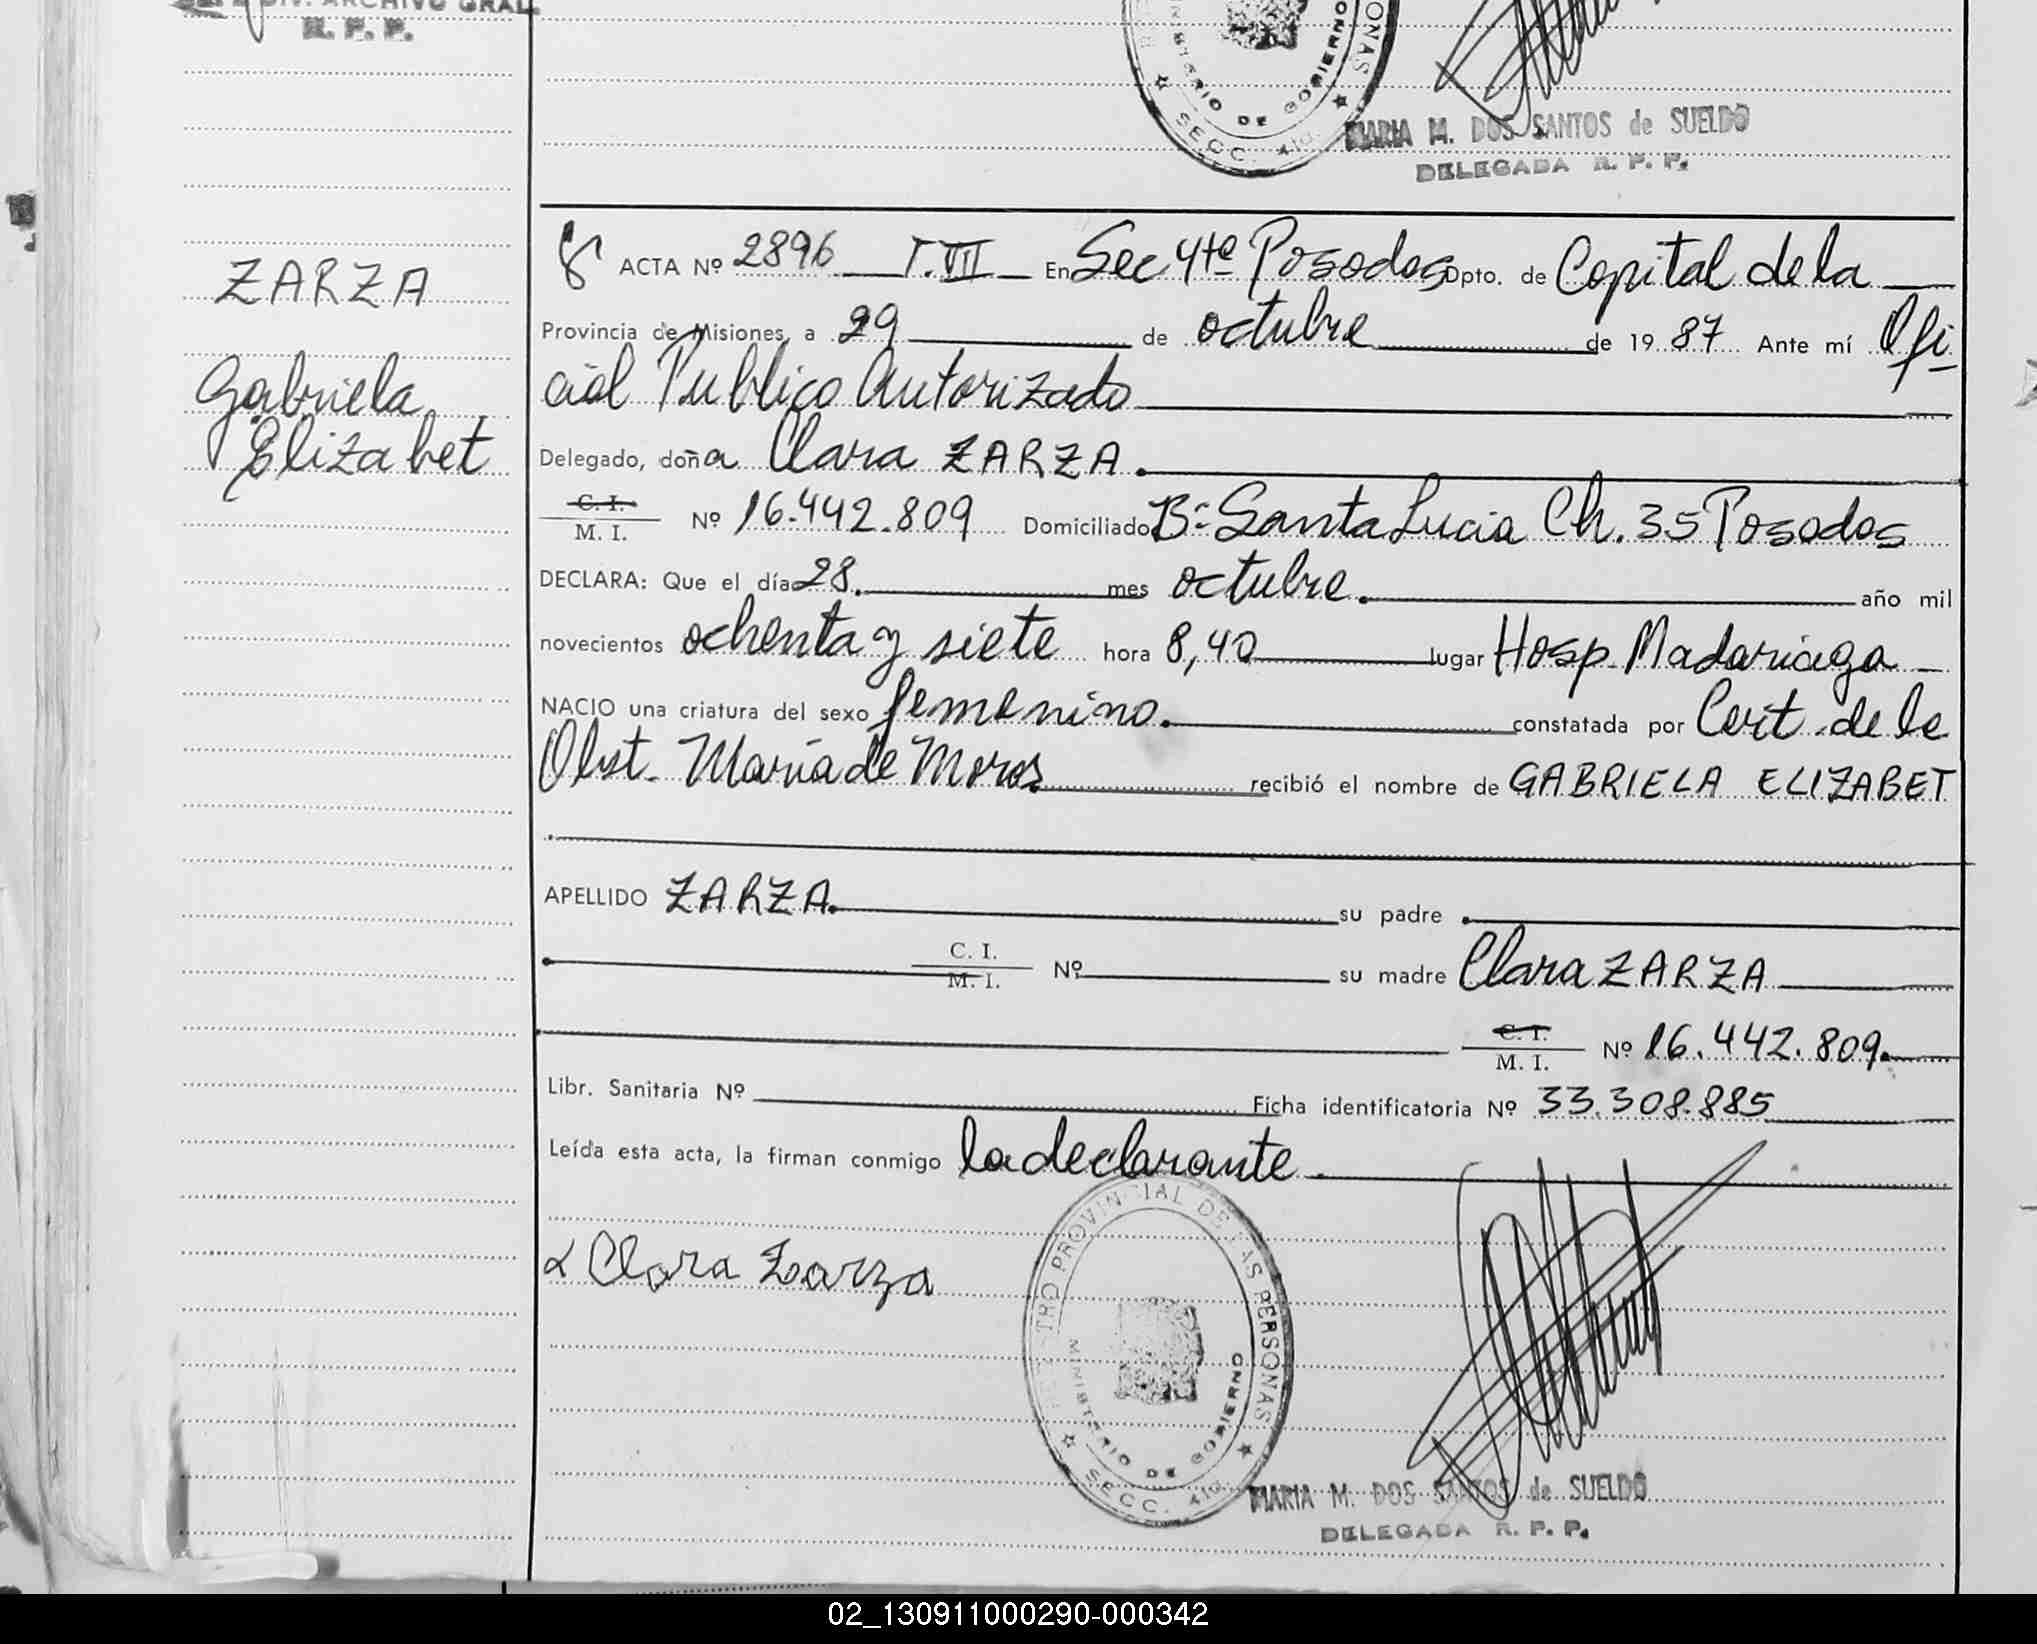 DIV. ARCHIVO GRAL.
R. P. P.
MINISTERIO DE GOBIERNO
SECC. 4ta.
MARIA M. DOS SANTOS de SUELDO
DELEGADA R. P. P.
ZARZA
Gabriela
Elizabet
ACTA Nº 2896 T.VII En Sec 4ta Posadas Dpto. de Capital de la
Provincia de Misiones, a 29 de octubre de 1987 Ante mí Ofi-
cial Publico Autorizado
Delegado, doña Clara ZARZA.
C. I.
M. I. Nº 16.442.809 Domiciliado Bº Santa Lucia Ch. 35 Posadas
DECLARA: Que el día 28. mes octubre. año mil
novecientos ochenta y siete hora 8,40 lugar Hosp. Madariaga
NACIO una criatura del sexo femenino. constatada por Cert. de la
Obst. María de Moros recibió el nombre de GABRIELA ELIZABET
APELLIDO ZARZA. su padre
C. I.
M. I. Nº su madre Clara ZARZA
C. I.
M. I. Nº 16.442.809.
Libr. Sanitaria Nº Ficha identificatoria Nº 33.308.885
Leída esta acta, la firman conmigo la declarante.
Clara Zarza
REGISTRO PROVINCIAL DE LAS PERSONAS
MINISTERIO DE GOBIERNO
SECC. 4ta.
MARIA M. DOS SANTOS de SUELDO
DELEGADA R. P. P.
02_130911000290-000342